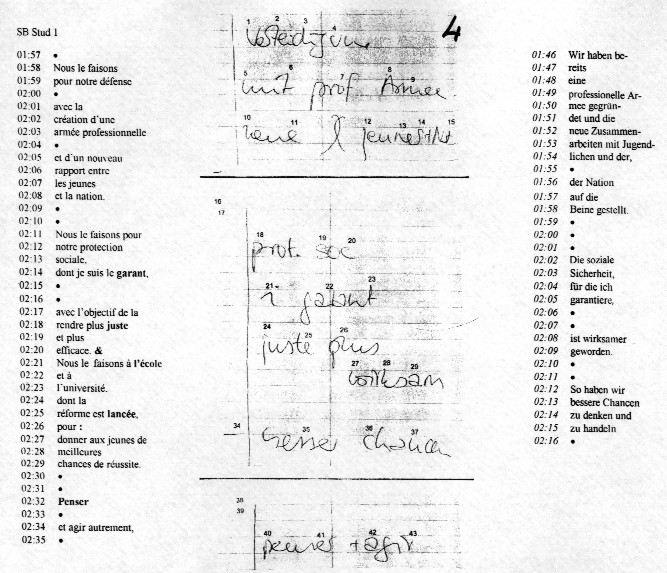 SB Stud 1
01:57 •
01:58 Nous le faisons
01:59 pour notre défense
02:00 •
02:01 avec la
02:02 création d'une
02:03 armée professionnelle
02:04 •
02:05 et d'un nouveau
02:06 rapport entre
02:07 les jeunes
02:08 et la nation.
02:09 •
02:10 •
02:11 Nous le faisons pour
02:12 notre protection
02:13 sociale,
02:14 dont je suis le garant,
02:15 •
02:16 •
02:17 avec l'objectif de la
02:18 rendre plus juste
02:19 et plus
02:20 efficace. &
02:21 Nous le faisons à l'école
02:22 et à
02:23 l'université.
02:24 dont la
02:25 réforme est lancée,
02:26 pour :
02:27 donner aux jeunes de
02:28 meilleures
02:29 chances de réussite.
02:30 •
02:31 •
02:32 Penser
02:33 •
02:34 et agir autrement,
02:35 •
4
1 2 3 4
Verteidigung
5 6 7 8 9
mit prof. Armee
10 11 12 13 14 15
jeunes + Nat
16
17
18 19 20
prot. soc
21 22 23
garant
24 25 26
juste plus
27 28 29
wirksam
34 35 36 37
besser chancen
38
39
40 41 42 43
penser + agir
01:46 Wir haben be-
01:47 reits
01:48 eine
01:49 professionelle Ar-
01:50 mee gegrün-
01:51 det und die
01:52 neue Zusammen-
01:53 arbeiten mit Jugend-
01:54 lichen und der,
01:55 •
01:56 der Nation
01:57 auf die
01:58 Beine gestellt.
01:59 •
02:00 •
02:01 •
02:02 Die soziale
02:03 Sicherheit,
02:04 für die ich
02:05 garantiere,
02:06 •
02:07 •
02:08 ist wirksamer
02:09 geworden.
02:10 •
02:11 •
02:12 So haben wir
02:13 bessere Chancen
02:14 zu denken und
02:15 zu handeln
02:16 •